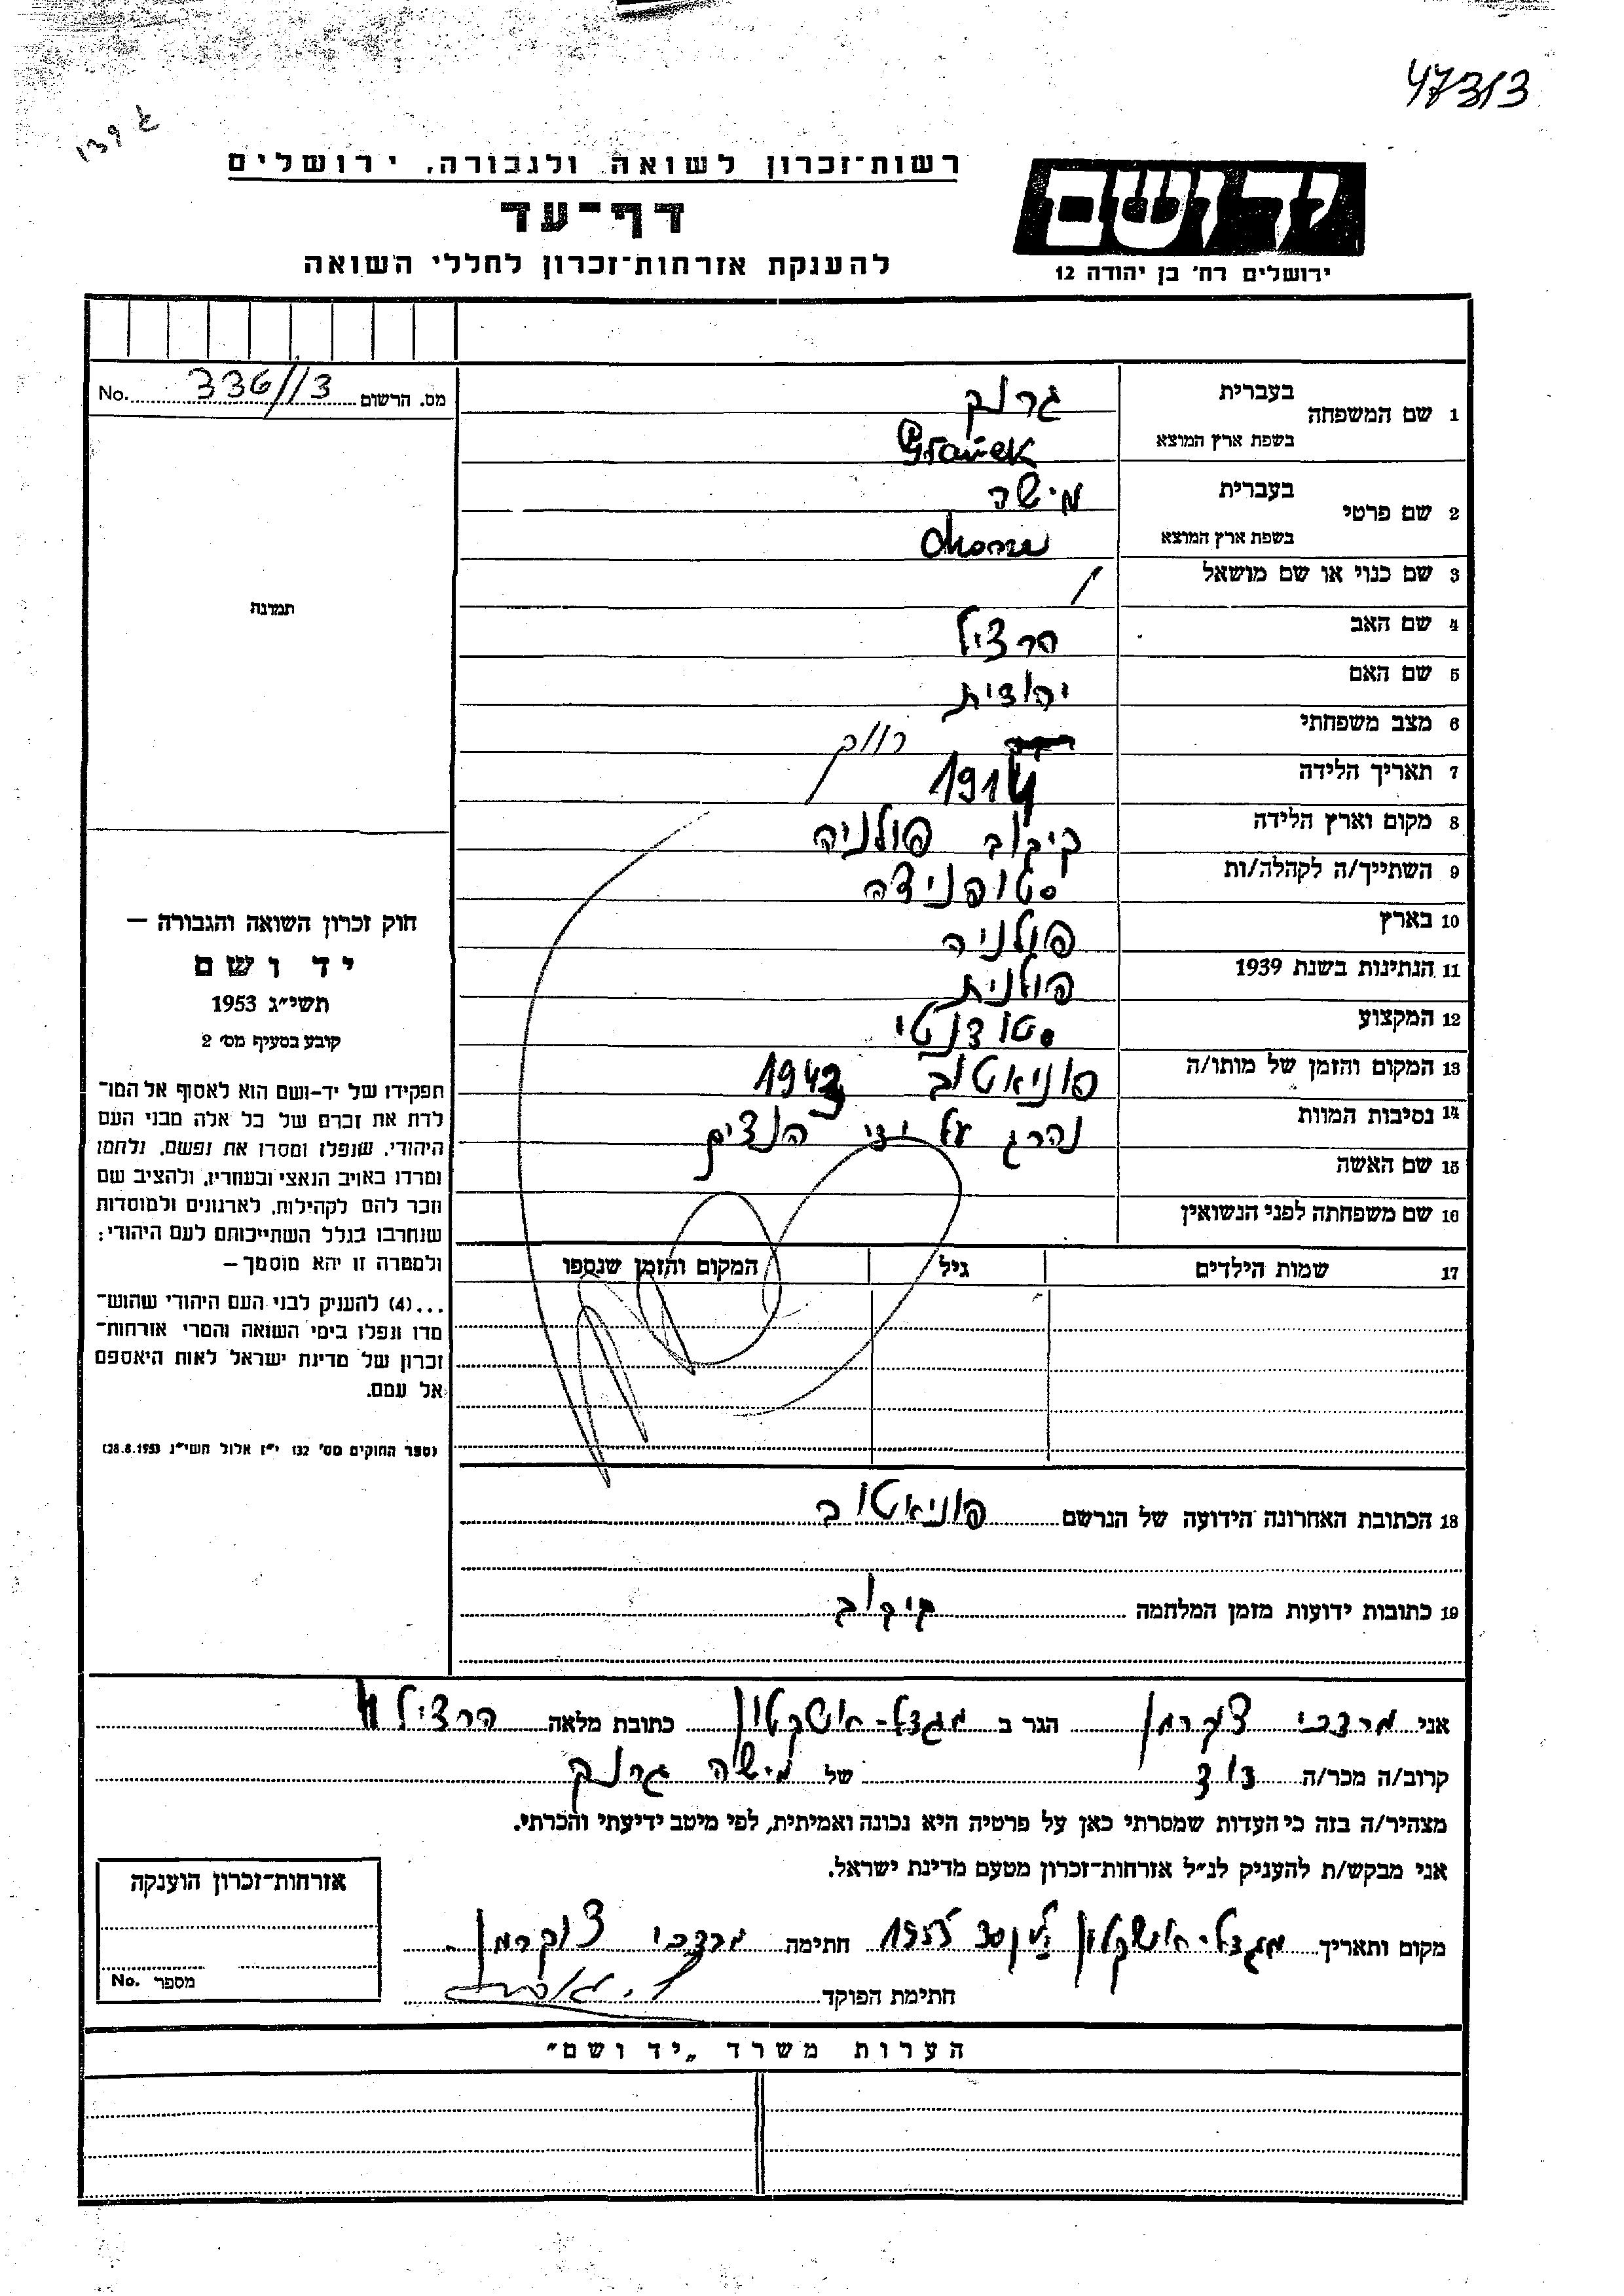 47313
139
רשות־זכרון לשואה ולגבורה, ירושלים
דף־עד
להענקת אזרחות־זכרון לחללי השואה
יד ושם
ירושלים רח' בן יהודה 12
מס. הרשום 336//3 No.
תמונה
חוק זכרון השואה והגבורה —
יד ושם
תשי״ג 1953
קובע בסעיף מס׳ 2
תפקידו של יד-ושם הוא לאסוף אל המו־
לדת את זכרם של כל אלה מבני העם
היהודי, שנפלו ומסרו את נפשם, נלחמו
ומרדו באויב הנאצי ובעוזריו, ולהציב שם
וזכר להם לקהילות, לארגונים ולמוסדות
שנחרבו בגלל השתייכותם לעם היהודי;
ולמטרה זו יהא מוסמך —
...(4) להעניק לבני העם היהודי שהוש־
מדו ונפלו בימי השואה והמרי אזרחות־
זכרון של מדינת ישראל לאות היאספם
אל עמם.
(ספר החוקים מס׳ 132 י״ז אלול תשי״ג 28.8.1953)
1 שם המשפחה בעברית גרנק
בשפת ארץ המוצא Granek
2 שם פרטי בעברית מישה
בשפת ארץ המוצא
3 שם כנוי או שם מושאל /
4 שם האב הרציל
5 שם האם יהודית
6 מצב משפחתי רווק
7 תאריך הלידה 1914
8 מקום וארץ הלידה קיקוב פולניה
9 השתייך/ה לקהלה/ות סטופניצה
10 בארץ פולניה
11 הנתינות בשנת 1939 פולנית
12 המקצוע סטודנטי
13 המקום והזמן של מותו/ה פוניאטוב 1943
14 נסיבות המוות נהרג על ידי הנצים
15 שם האשה
16 שם משפחתה לפני הנשואין
17 שמות הילדים גיל המקום והזמן שנספו
18 הכתובת האחרונה הידועה של הנרשם פוניאטוב
19 כתובות ידועות מזמן המלחמה קיקוב
אני מרדכי צוקרמן הגר ב מגדל-אשקלון כתובת מלאה הרציל 11
קרוב/ה מכר/ה דוד של מישה גרנק
מצהיר/ה בזה כי העדות שמסרתי כאן על פרטיה היא נכונה ואמיתית, לפי מיטב ידיעתי והכרתי.
אני מבקש/ת להעניק לנ״ל אזרחות־זכרון מטעם מדינת ישראל.
מקום ותאריך מגדל-אשקלון 1955 חתימה מרדכי צוקרמן
חתימת הפוקד
אזרחות־זכרון הוענקה
מספר No.
הערות משרד „יד ושם״